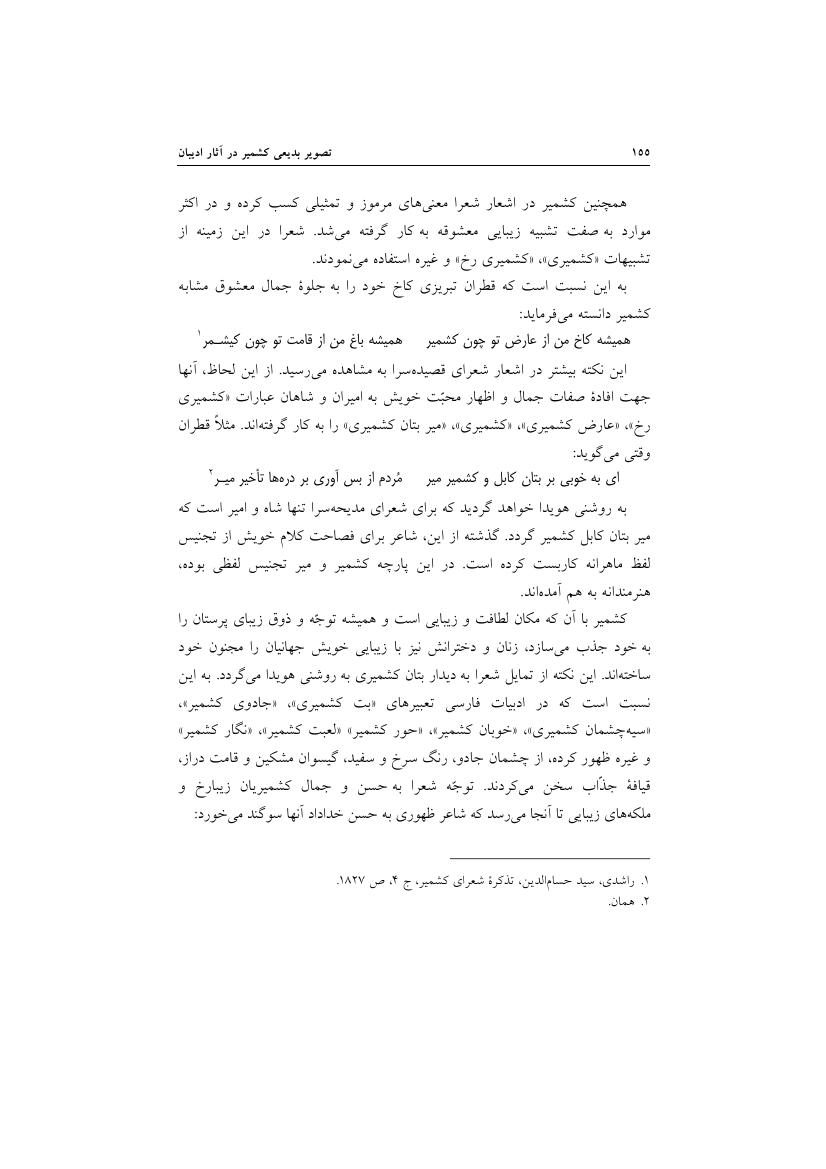 ۱۵۵ تصویر بدیعی کشمیر در آثار ادیبان
همچنین کشمیر در اشعار شعرا معنی‌های مرموز و تمثیلی کسب کرده و در اکثر
موارد به صفت تشبیه زیبایی معشوقه به کار گرفته می‌شد. شعرا در این زمینه از
تشبیهات «کشمیری»، «کشمیری رخ» و غیره استفاده می‌نمودند.
به این نسبت است که قطران تبریزی کاخ خود را به جلوۀ جمال معشوق مشابه
کشمیر دانسته می‌فرماید:
همیشه کاخ من از عارض تو چون کشمیر همیشه باغ من از قامت تو چون کیشـمر۱
این نکته بیشتر در اشعار شعرای قصیده‌سرا به مشاهده می‌رسید. از این لحاظ، آنها
جهت افادۀ صفات جمال و اظهار محبّت خویش به امیران و شاهان عبارات «کشمیری
رخ»، «عارض کشمیری»، «کشمیری»، «میر بتان کشمیری» را به کار گرفته‌اند. مثلاً قطران
وقتی می‌گوید:
ای به خوبی بر بتان کابل و کشمیر میر مُردم از بس آوری بر دره‌ها تأخیر میـر۲
به روشنی هویدا خواهد گردید که برای شعرای مدیحه‌سرا تنها شاه و امیر است که
میر بتان کابل کشمیر گردد. گذشته از این، شاعر برای فصاحت کلام خویش از تجنیس
لفظ ماهرانه کاربست کرده است. در این پارچه کشمیر و میر تجنیس لفظی بوده،
هنرمندانه به هم آمده‌اند.
کشمیر با آن که مکان لطافت و زیبایی است و همیشه توجّه و ذوق زیبای پرستان را
به خود جذب می‌سازد، زنان و دخترانش نیز با زیبایی خویش جهانیان را مجنون خود
ساخته‌اند. این نکته از تمایل شعرا به دیدار بتان کشمیری به روشنی هویدا می‌گردد. به این
نسبت است که در ادبیات فارسی تعبیرهای «بت کشمیری»، «جادوی کشمیر»،
«سیه‌چشمان کشمیری»، «خوبان کشمیر»، «حور کشمیر» «لعبت کشمیر»، «نگار کشمیر»
و غیره ظهور کرده، از چشمان جادو، رنگ سرخ و سفید، گیسوان مشکین و قامت دراز،
قیافۀ جذّاب سخن می‌کردند. توجّه شعرا به حسن و جمال کشمیریان زیبارخ و
ملکه‌های زیبایی تا آنجا می‌رسد که شاعر ظهوری به حسن خداداد آنها سوگند می‌خورد:
۱. راشدی، سید حسام‌الدین، تذکرۀ شعرای کشمیر، ج ۴، ص ۱۸۲۷.
۲. همان.